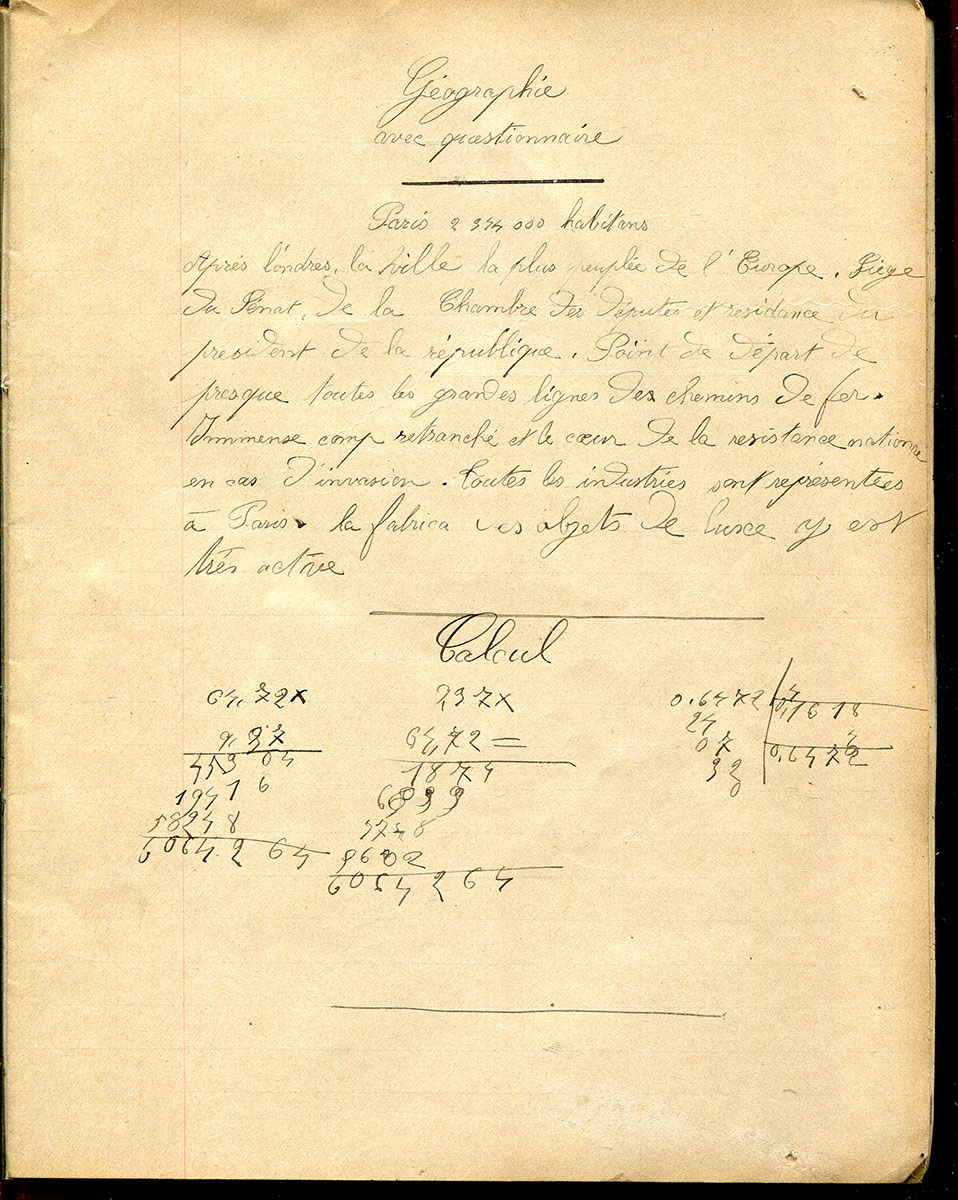 Géographie
avec questionnaire
Paris 2 344 000 habitans
Après londres, la ville la plus peuplée de l'Europe. Siège
du Sénat, de la Chambre des députés et residance du
president de la république. Point de départ de
presque toutes les grandes lignes des chemins de fer.
Immense camp retranché et le cœur de la resistance nationa
en cas d'invasion. toutes les industries sont représentées
à Paris la fabrica des objets de luxe y est
très active
Calcul
64,72x 937x 0.6472 4
9,37 64,72= 24 0,1618
453 04 1874 07 4
1941 6 6559 32 0,6472
58248 3748
60642 64 5622
6064264